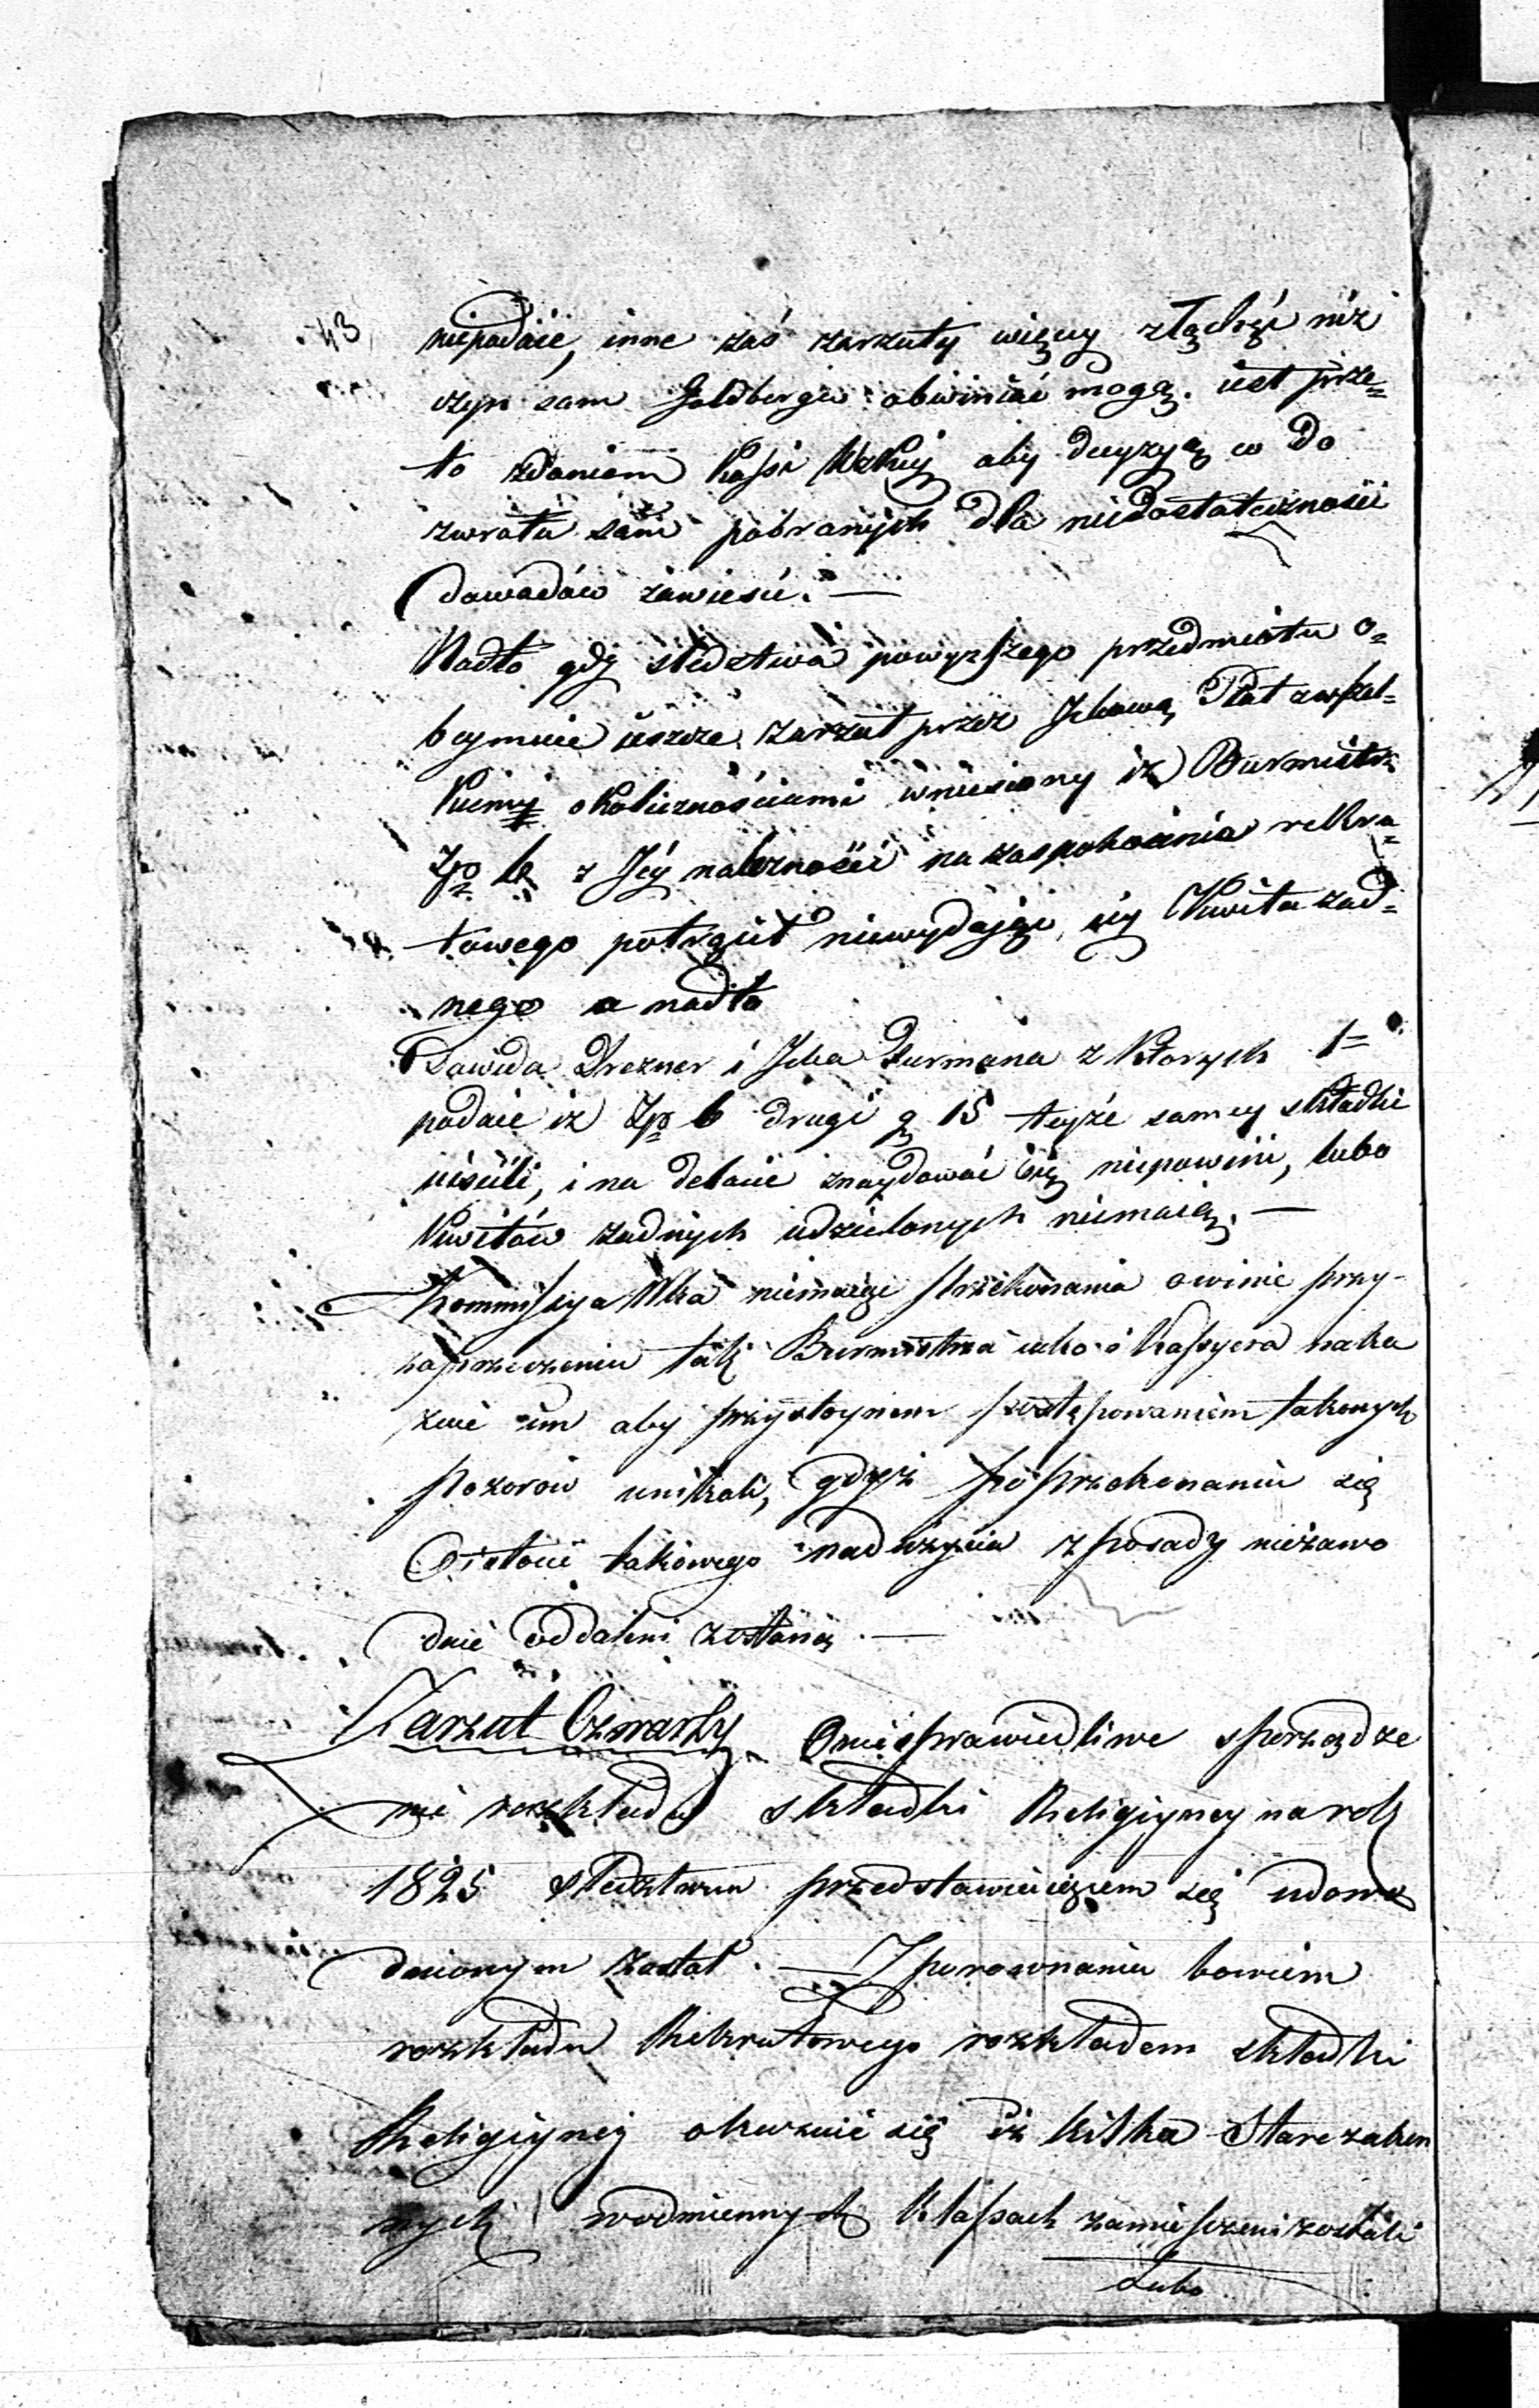 43
niepodaie, inne zaś zarzuty więcey złą chęć niż
czyn sam Goldberga obwiniać mogą. iest prze=
to zdaniem Kossi Wzkiey aby decyzyą w do
zwrotu sum pobranych dla niedostateczności
dowodów zawiesić. —
Nadto gdy śledztwa powyższego przedmiotu o=
beymuie ieszcze zarzut przez Ickową Plat
okolicznościami wniesiony iż Burmistrz
Zp 6 z Jéy należności na zaspokoienie rekru=
towego potrącił niewydaiąc iéy Kwitu żad=
nego a nadto
Dawida Drezner i Icka Furmana z których 1=
podaie iż Zp 6 drugi g 15 teyże samey składki
uiścili, i na delacie znaydować się niepowini, lubo
Kwitów żadnych udzielonych niemaią. —
Kommissya Wka niemaiąc przekonania o winie przy
zaprzeczeniu tak Burmistrza iako i Kassyera naka
zuie im aby przystoynem postępowaniem takowych
pozorów unikali, gdyż po przekonaniu się
O istocie takowego nadużycia z posady niezawo
dnie oddaleni zostaną. —
Zarzut Czwarty O niesprawiedliwe sporządze
nie rozkładu składki Religiyney na rok
1825 śledztwem przedstawiciącem się udowo
dnionym został. — Z porownania bowiem
rozkładu Rekrutowego rozkładem składki
Religiyney okazuie się iż kilka Starozakon
nych w odmiennych Klassach zamieszczeni zostali
Lubo